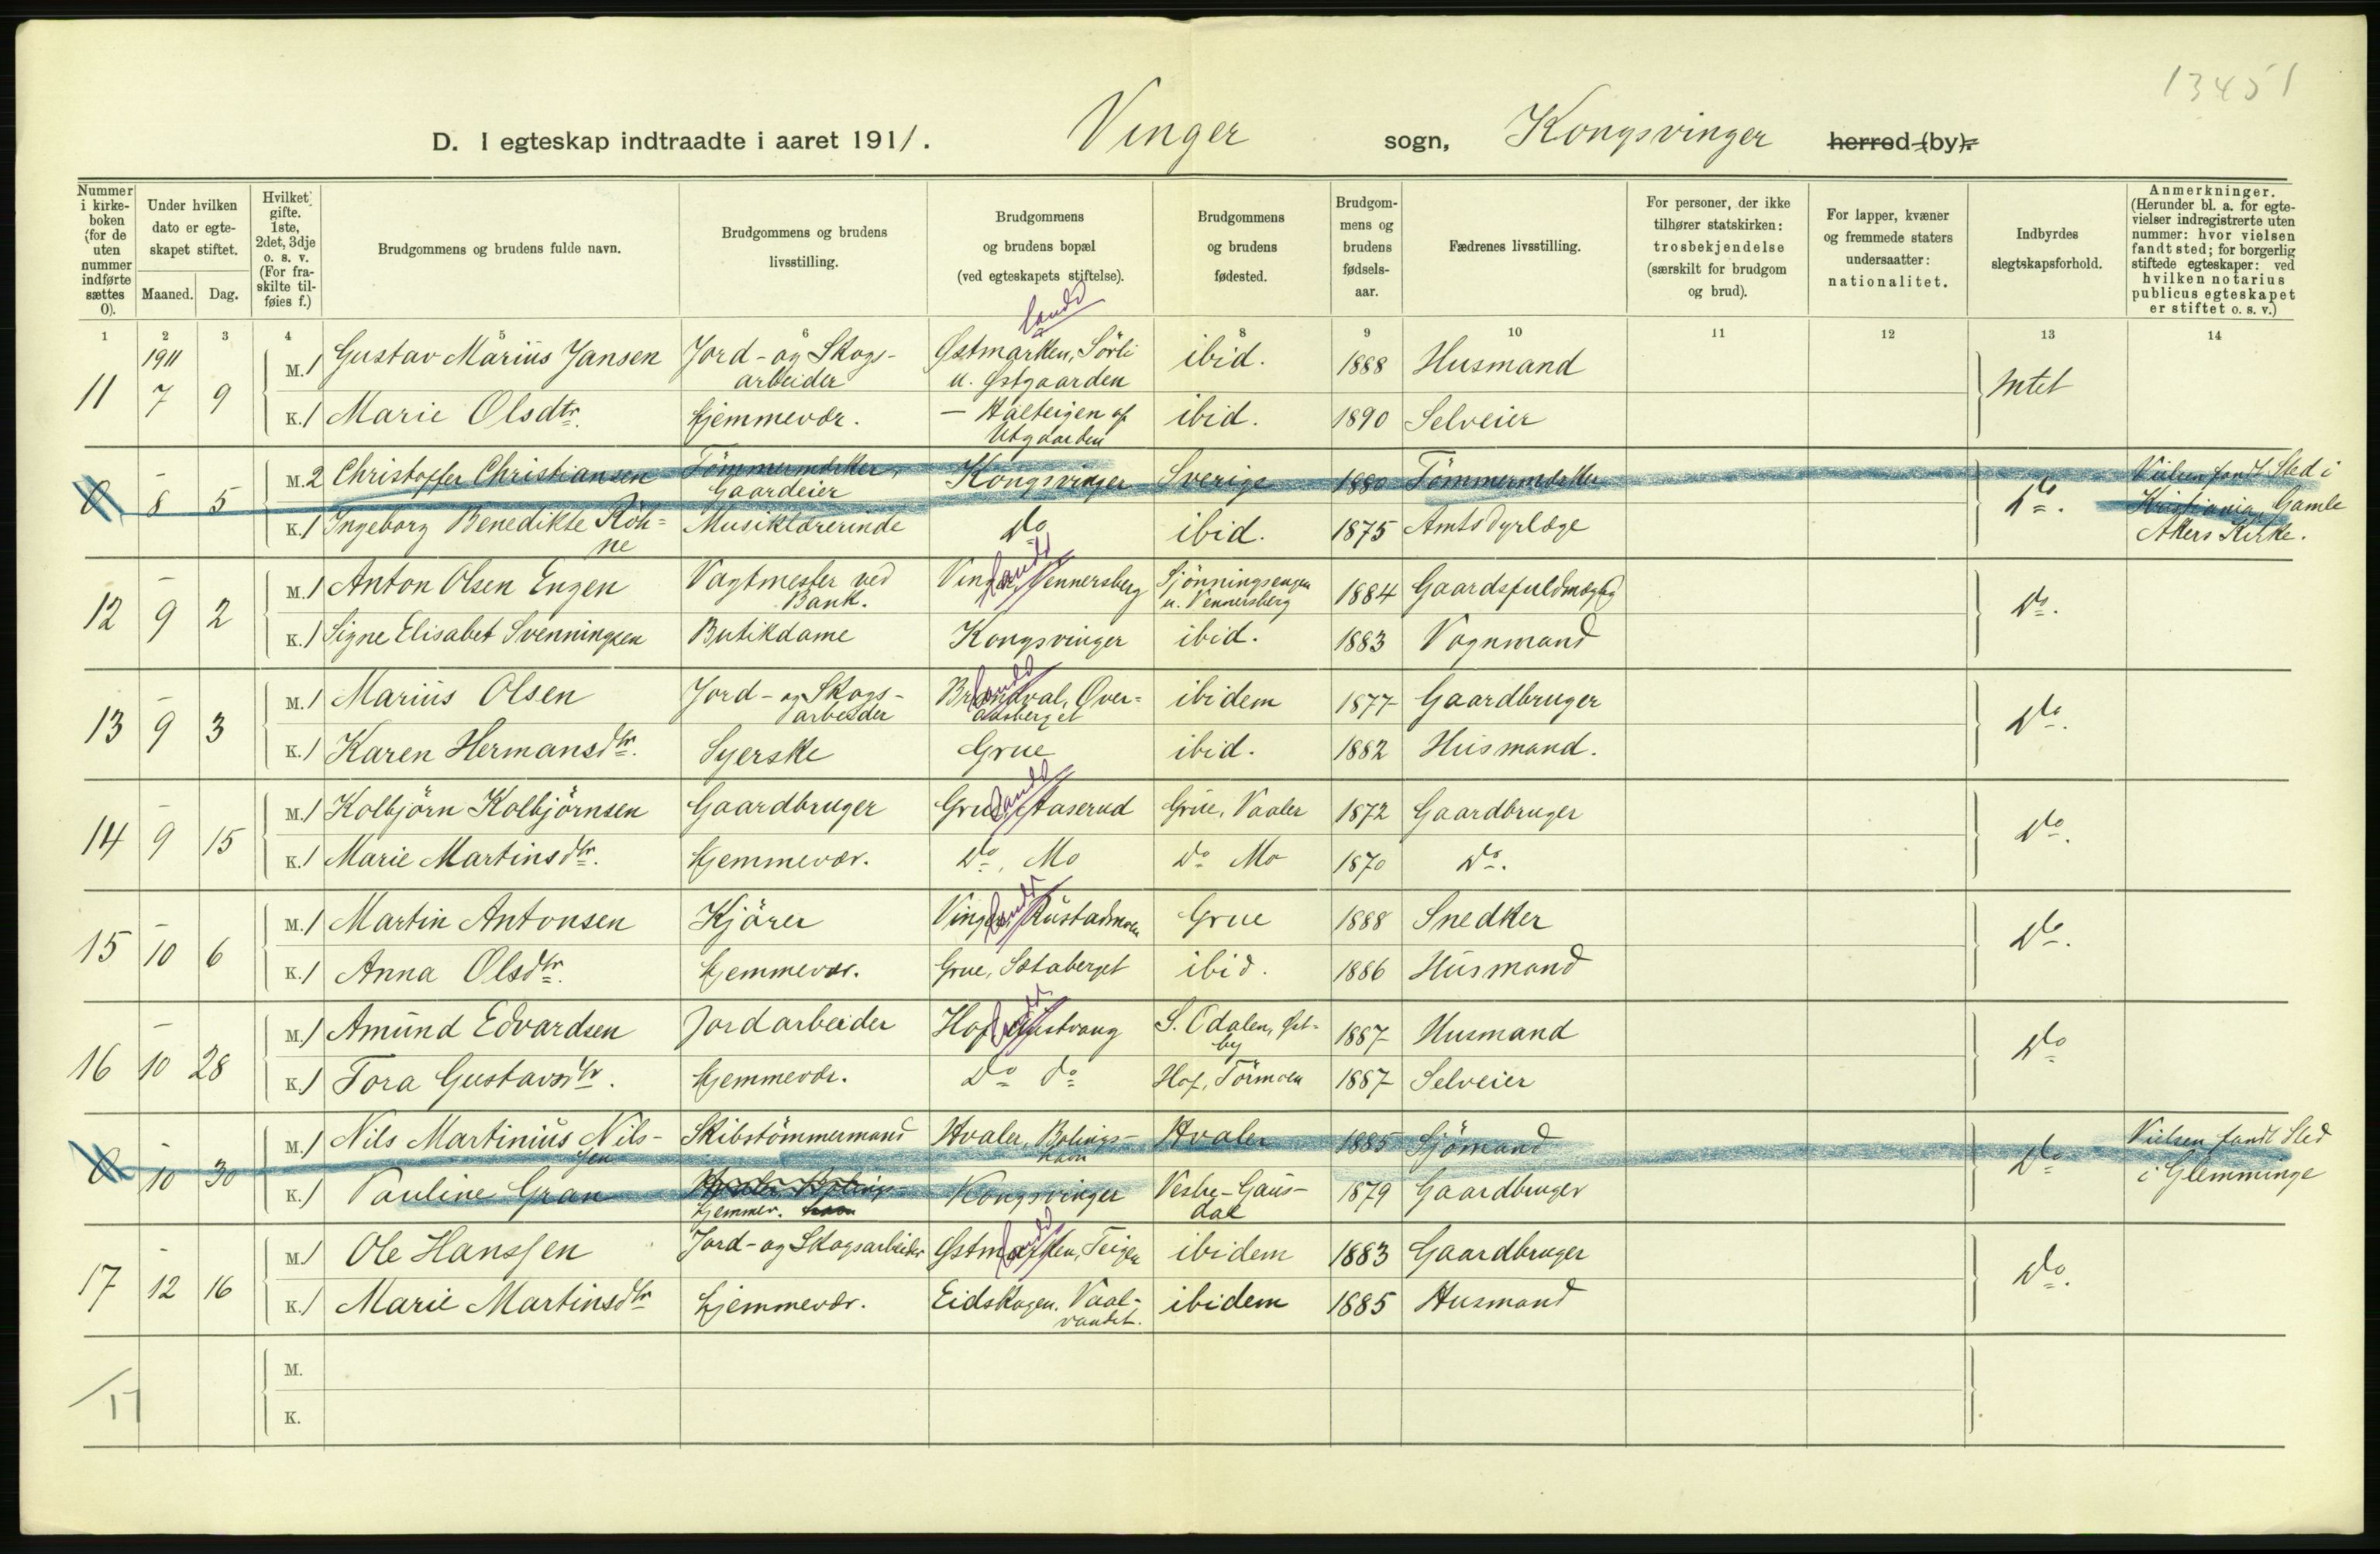 13451
D. I egteskap indtraadte i aaret 1911. Vinger sogn, Kongsvinger herred (by).
Nummer i kirkeboken (for de uten nummer indførte sættes 0).
Under hvilken dato er egteskapet stiftet.
Maaned. Dag.
Hvilket gifte. 1ste, 2det, 3dje o. s. v. (For fraskilte tilføies f.)
Brudgommens og brudens fulde navn.
Brudgommens og brudens livsstilling.
Brudgommens og brudens bopæl (ved egteskapets stiftelse).
Brudgommens og brudens fødested.
Brudgommens og brudens fødselsaar.
Fædrenes livsstilling.
For personer, der ikke tilhører statskirken: trosbekjendelse (særskilt for brudgom og brud).
For lapper, kvæner og fremmede staters undersaatter: nationalitet.
Indbyrdes slegtskapsforhold.
Anmerkninger. (Herunder bl. a. for egtevielser indregistrerte uten nummer: hvor vielsen fandt sted; for borgerlig stiftede egteskaper: ved hvilken notarius publicus egteskapet er stiftet o. s. v.)
1 2 3 4 5 6 8 9 10 11 12 13 14
1911
11 7 9 M. 1 Gustav Marius Jansen Jord- og Skogsarbeider Østmarken, Sörli u. Østgaarden landd ibid. 1888 Husmand Intet
K. 1 Marie Olsdtr. Hjemmevær. — af Utgaarden ibid. 1890 Selveier
0 8 5 M. 2 Christoffer Christiansen Tömmermærker, Gaardeier Kongsvinger Sverige 1880 Tömmermærker Do. Vielsen fandt Sted i Kristiania, Gamle Akers Kirke.
K. 1 Ingeborg Benedikte Röhne Musiklærerinde Do ibid. 1875 Amtsdyrlæge
12 9 2 M. 1 Anton Olsen Engen Vagtmester ved Bank. Vinger, Vennersberg landd Sjönningsengen u. Vennersberg 1884 Gaardsfuldmægtig Do.
K. 1 Signe Elisabet Svenningsen Butikdame Kongsvinger ibid. 1883 Vognmand
13 9 3 M. 1 Marius Olsen Jord- og Skogsarbeider Brandval, Overaasberget landd ibidem 1877 Gaardbruger Do.
K. 1 Karen Hermansdtr. Syerske Grue ibid. 1882 Husmand.
14 9 15 M. 1 Kolbjörn Kolbjörnsen Gaardbruger Grue, Aaserud landd Grue, Vaaler 1872 Gaardbruger Do.
K. 1 Marie Martinsdtr. Hjemmevær. Do, Mo Do Mo 1870 Do.
15 10 6 M. 1 Martin Antonsen Kjörer Vinger, Rustadmoen landd Grue 1888 Snedker Do.
K. 1 Anna Olsdtr. Hjemmevær. Grue, Sætaberget ibid. 1886 Husmand
16 10 28 M. 1 Amund Edvardsen Jordarbeider Hof landd S. Odalen, Østby 1887 Husmand Do
K. 1 Tora Gustavsdtr. Hjemmevær. Do do Hof, Törmoen 1887 Selveier
0 10 30 M. 1 Nils Martinius Nilssen Skibstömmermand Hvaler, Bölingshavn Hvaler 1885 Sjömand Do Vielsen fandt Sted i Glemminge
K. 1 Pauline Gran Hjemmev. Kongsvinger Vestre-Gausdal 1879 Gaardbruger
17 12 16 M. 1 Ole Hanssen Jord- og Skogsarbeider Østmarken, Teigen landd ibidem 1883 Gaardbruger Do.
K. 1 Marie Martinsdtr Hjemmevær. Eidskogen. Vaalvandet. ibidem 1885 Husmand
M.
K.
17